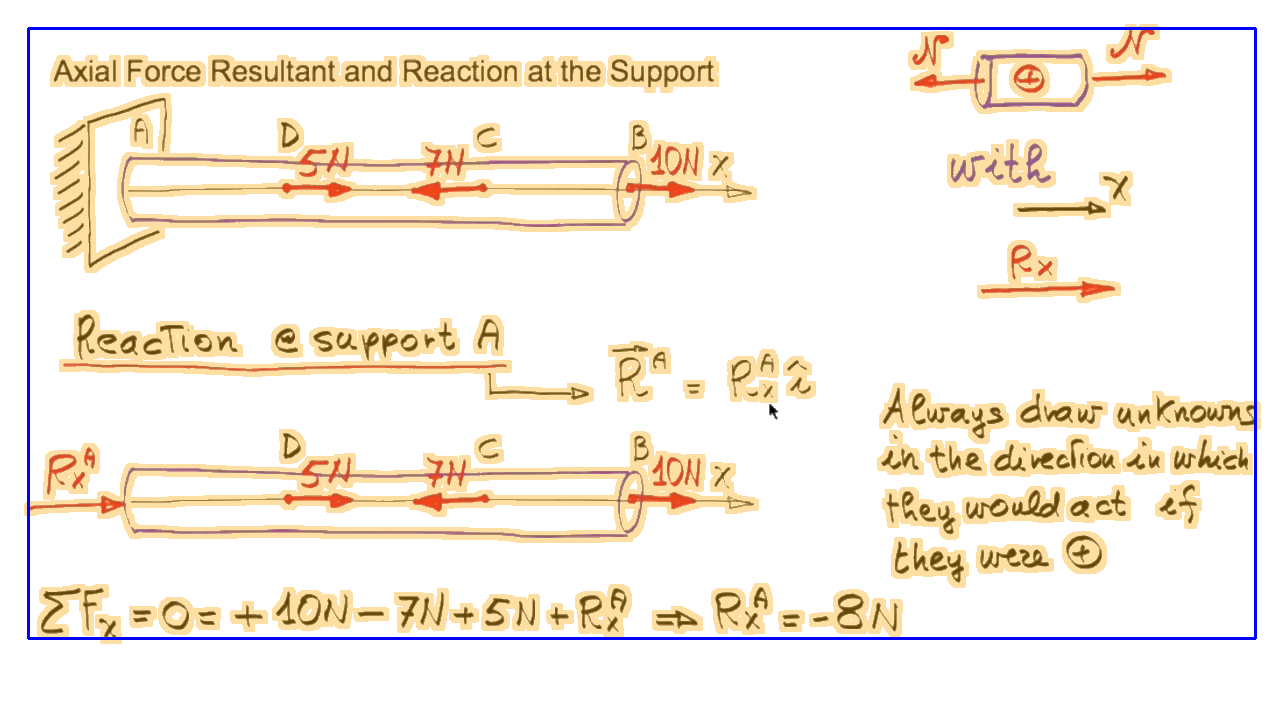 Axial Force Resultant and Reaction at the Support
N N
⊕
A D 5N 7N C B 10N X
with
X
Rx
Reaction @ support A
R^A = Rx^A î
Always draw unknowns
in the direction in which
they would act if
they were ⊕
Rx^A D 5N 7N C B 10N X
ΣFx = 0 = + 10N - 7N + 5N + Rx^A ⇒ Rx^A = -8N